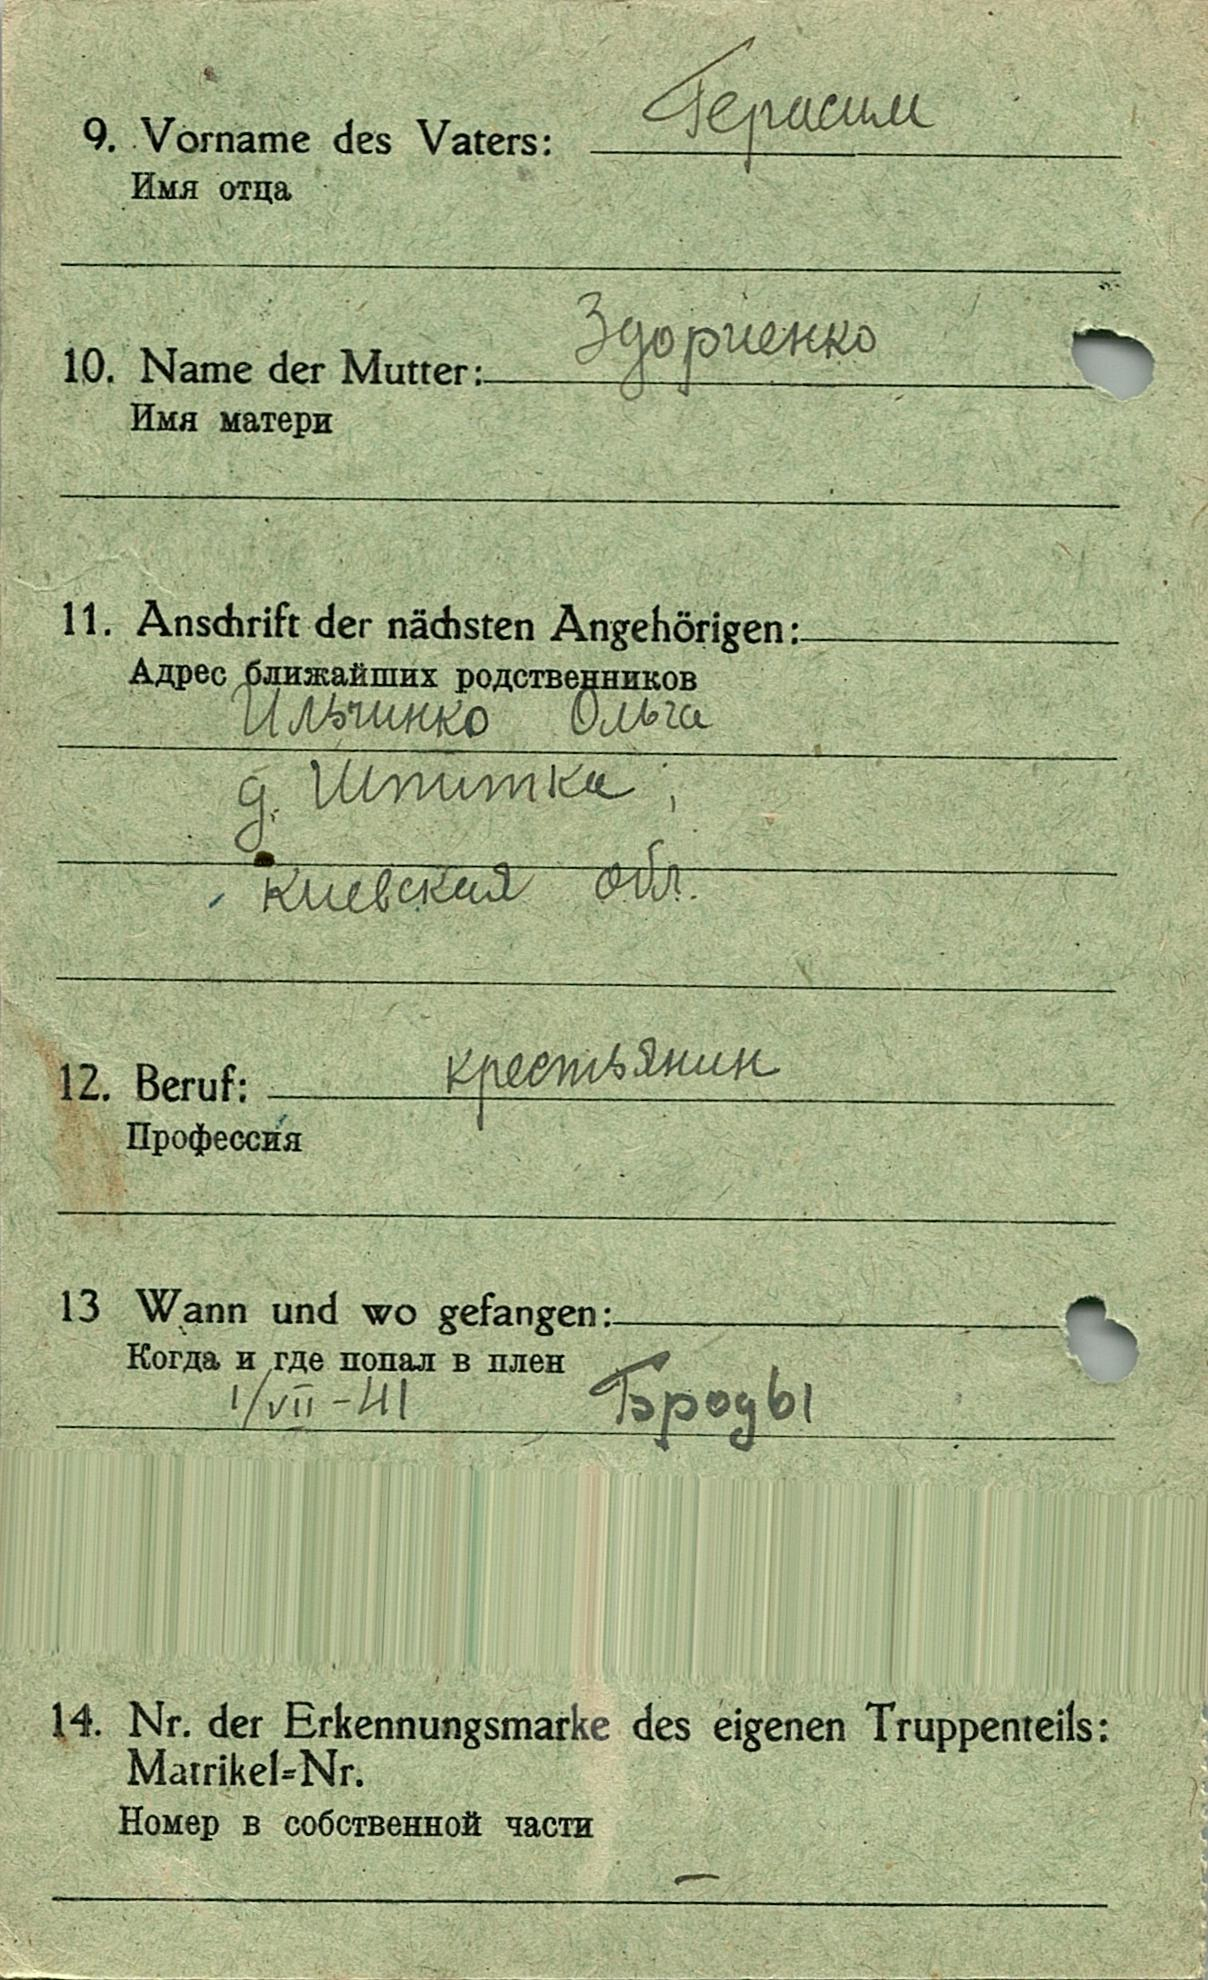 9. Vorname des Vaters: Герасим
Имя отца
10. Name der Mutter: Здориенко
Имя матери
11. Anschrift der nächsten Angehörigen:
Адрес ближайших родственников
Ильчинко Ольга
д. Шпитка,
Киевская обл.
12. Beruf: крестьянин
Профессия
13 Wann und wo gefangen:
Когда и где попал в плен
1/VII-41 Броды
14. Nr. der Erkennungsmarke des eigenen Truppenteils:
Matrikel=Nr.
Номер в собственной части
—